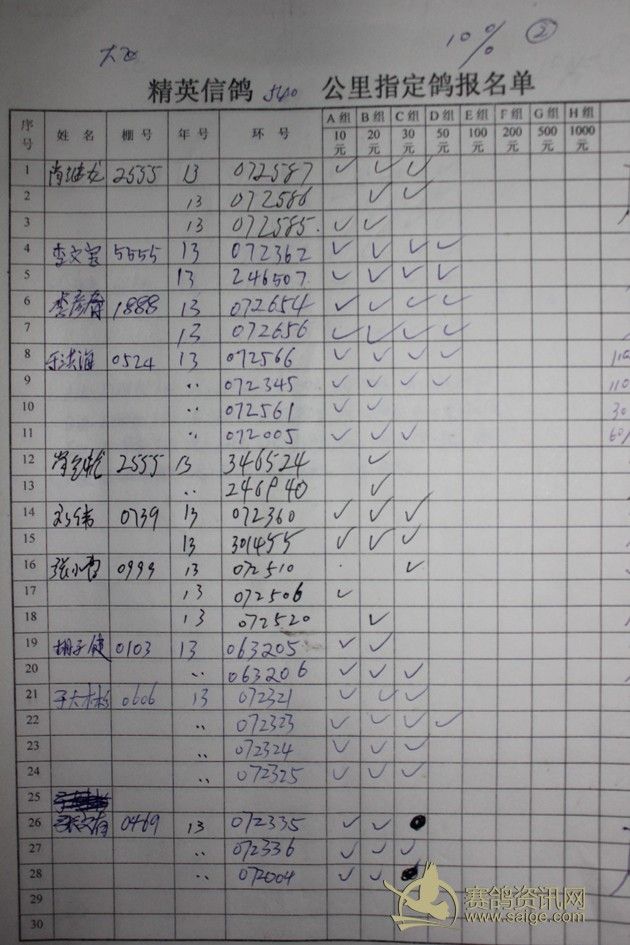 10% ②
精英信鸽 500 公里指定鸽报名单
序号 姓 名 棚 号 年 号 环 号 A组 10元 B组 20元 C组 30元 D组 50元 E组 100元 F组 200元 G组 500元 H组 1000元
1 2555 13 072587 ✓ ✓ ✓
2 13 072586 ✓ ✓
3 13 072585. ✓ ✓
4 李文宝 5555 13 072362 ✓ ✓ ✓ ✓
5 13 246507 ✓ ✓ ✓ ✓
6 1888 13 072654 ✓ ✓ ✓ ✓
7 13 072656 ✓ ✓ ✓ ✓
8 于洪海 0524 13 072566 ✓ ✓ ✓ ✓
9 〃 072345 ✓ ✓ ✓ ✓
10 〃 072561 ✓ ✓
11 〃 072005 ✓ ✓ ✓
12 2555 13 346524 ✓
13 〃 246940 ✓
14 刘伟 0739 13 072360 ✓ ✓ ✓
15 13 301455 ✓ ✓ ✓
16 0999 13 072510 ✓
17 13 072506 ✓
18 13 072520 ✓
19 胡子健 0103 13 063205 ✓ ✓
20 〃 063206 ✓ ✓ ✓
21 于大彬 0606 13 072321 ✓ ✓ ✓
22 〃 072323 ✓ ✓ ✓ ✓
23 〃 072324 ✓ ✓ ✓
24 〃 072325 ✓ ✓ ✓
25
26 0469 13 072335 ✓ ✓
27 〃 072336 ✓ ✓ ✓
28 〃 072004 ✓ ✓
29
30
赛鸽资讯网
www.saige.com